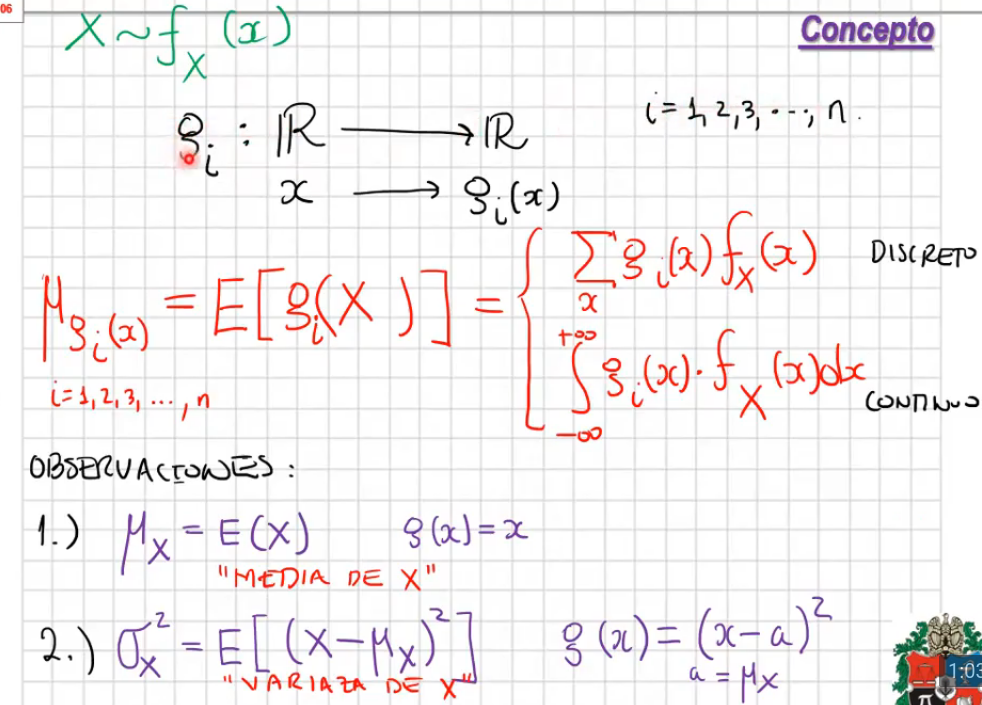 06
X ~ f_X (x)
Concepto
g_i : ℝ ⟶ ℝ
i = 1, 2, 3, ..., n.
x ⟶ g_i(x)
μ_{g_i(x)} = E[g_i(X)] = {
∑_x g_i(x) f_X(x) DISCRETO
∫_{-∞}^{+∞} g_i(x) · f_X(x) dx CONTINUO
i = 1, 2, 3, ..., n
OBSERVACIONES:
1.) μ_X = E(X) g(x) = x
"MEDIA DE X"
2.) σ_X^2 = E[(X - μ_X)^2] g(x) = (x - a)^2
"VARIAZA DE X" a = μ_X
1:03